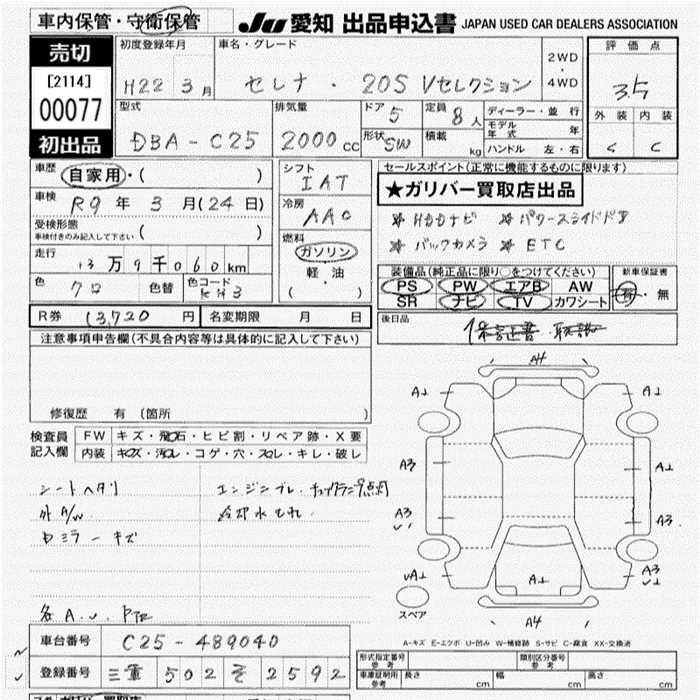 車内保管・守衛保管
JU 愛知 出品申込書 JAPAN USED CAR DEALERS ASSOCIATION
売切
[2114]
00077
初出品
初度登録年月
H22 3月
車名・グレード
セレナ・20S Vセレクション
2WD・4WD
評価点
3.5
外装 内装
C C
型式
DBA-C25
排気量
2000cc
ドア 5
形状 SW
定員 8人
積載 kg
ディーラー・並行
モデル年式 年
ハンドル 左・右
車歴 自家用・( )
車検 R9年3月(24日)
受検形態
車検付きのみ記入して下さい ( )
走行 13万9千060km
色 クロ 色替 色コード KH3
シフト
IAT
冷房
AAC
燃料
ガソリン
軽・油
( )
セールスポイント(正常に機能するものに限ります)
★ガリバー買取店出品
※ HDDナビ ※ パワースライドドア
※ バックカメラ ※ ETC
装備品(純正品に限り○をつけてください)
PS PW エアB AW
SR ナビ TV カワシート
新車保証書
有・無
R券 13,720円 名変期限 月 日
後日品
保証書・取説
注意事項申告欄(不具合内容等は具体的に記入して下さい)
修復歴 有 (箇所 )
検査員記入欄
FW キズ・飛石・ヒビ割・リペア跡・X要
内装 キズ・汚れ・コゲ・穴・スレ・キレ・破レ
シートヘタリ エンジンブレ・チェックランプ点灯
外A/W 冷却水モレ
Dミラーキズ
各A.U.
A4
A1 A1
A3 A1
A3 A3
UA1 A1 A3
A4
スペア
A-キズ E-エクボ U-凹み W-補修跡 S-サビ C-腐食 XX-交換済
車台番号 C25-489040
登録番号 三重 502 そ 2592
形式指定番号 参考 類別区分番号 参考
車庫証明用 参考 長さ cm 幅 cm 高さ cm